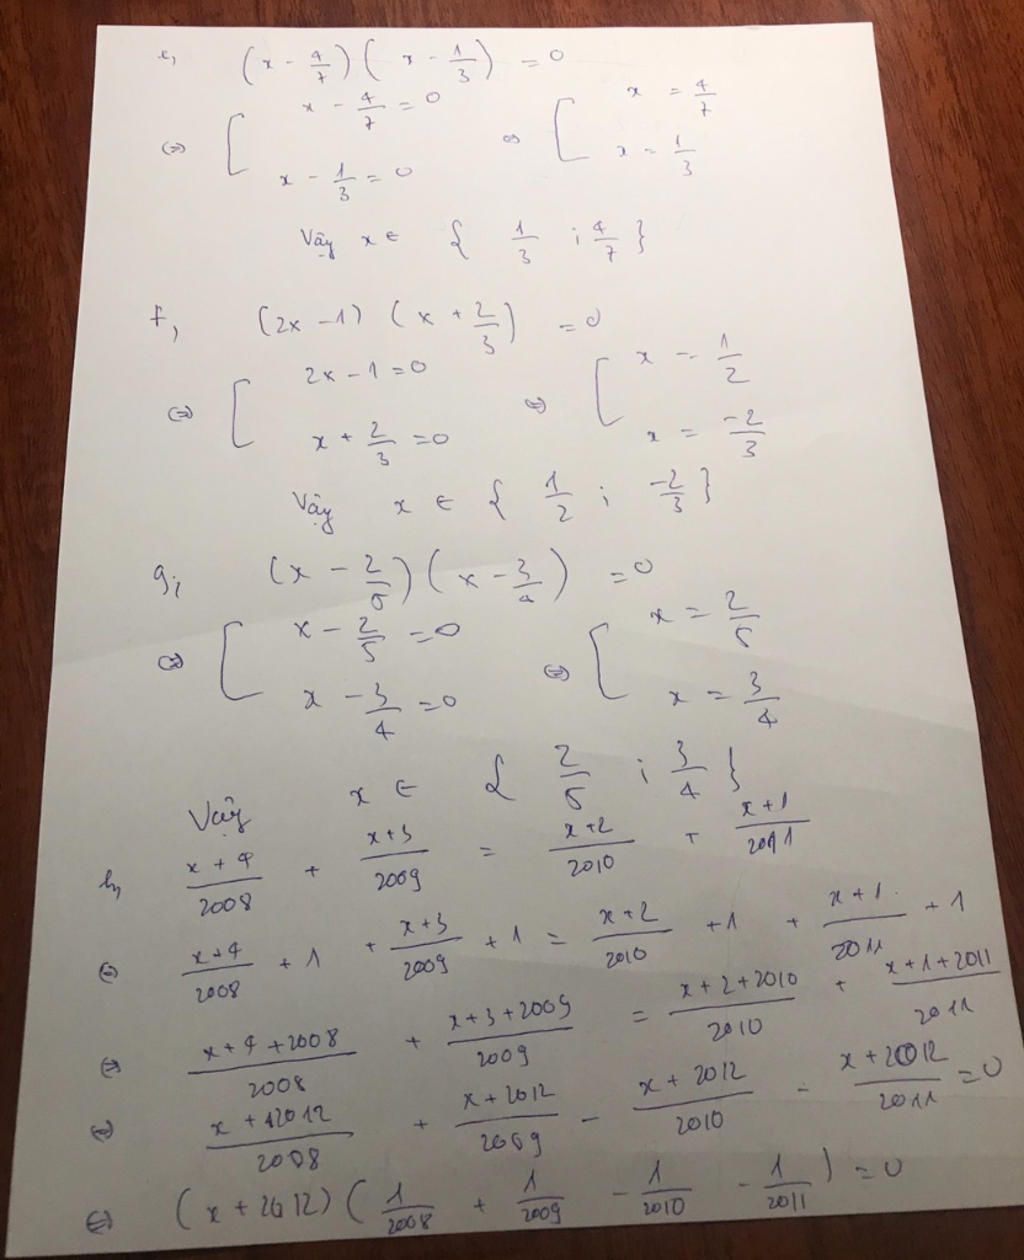 e, (x - 4/7)(x - 1/3) = 0
⇔ [ x - 4/7 = 0 ⇔ [ x = 4/7
x - 1/3 = 0 x = 1/3
Vậy x ∈ { 1/3 ; 4/7 }
f, (2x - 1)(x + 2/3) = 0
⇔ [ 2x - 1 = 0 ⇔ [ x = 1/2
x + 2/3 = 0 x = -2/3
Vậy x ∈ { 1/2 ; -2/3 }
g, (x - 2/5)(x - 3/4) = 0
⇔ [ x - 2/5 = 0 ⇔ [ x = 2/5
x - 3/4 = 0 x = 3/4
Vậy x ∈ { 2/5 ; 3/4 }
h, x+4/2008 + x+3/2009 = x+2/2010 + x+1/2011
⇔ x+4/2008 + 1 + x+3/2009 + 1 = x+2/2010 + 1 + x+1/2011 + 1
⇔ x+4+2008/2008 + x+3+2009/2009 = x+2+2010/2010 + x+1+2011/2011
⇔ x+2012/2008 + x+2012/2009 - x+2012/2010 - x+2012/2011 = 0
⇔ (x+2012)(1/2008 + 1/2009 - 1/2010 - 1/2011) = 0